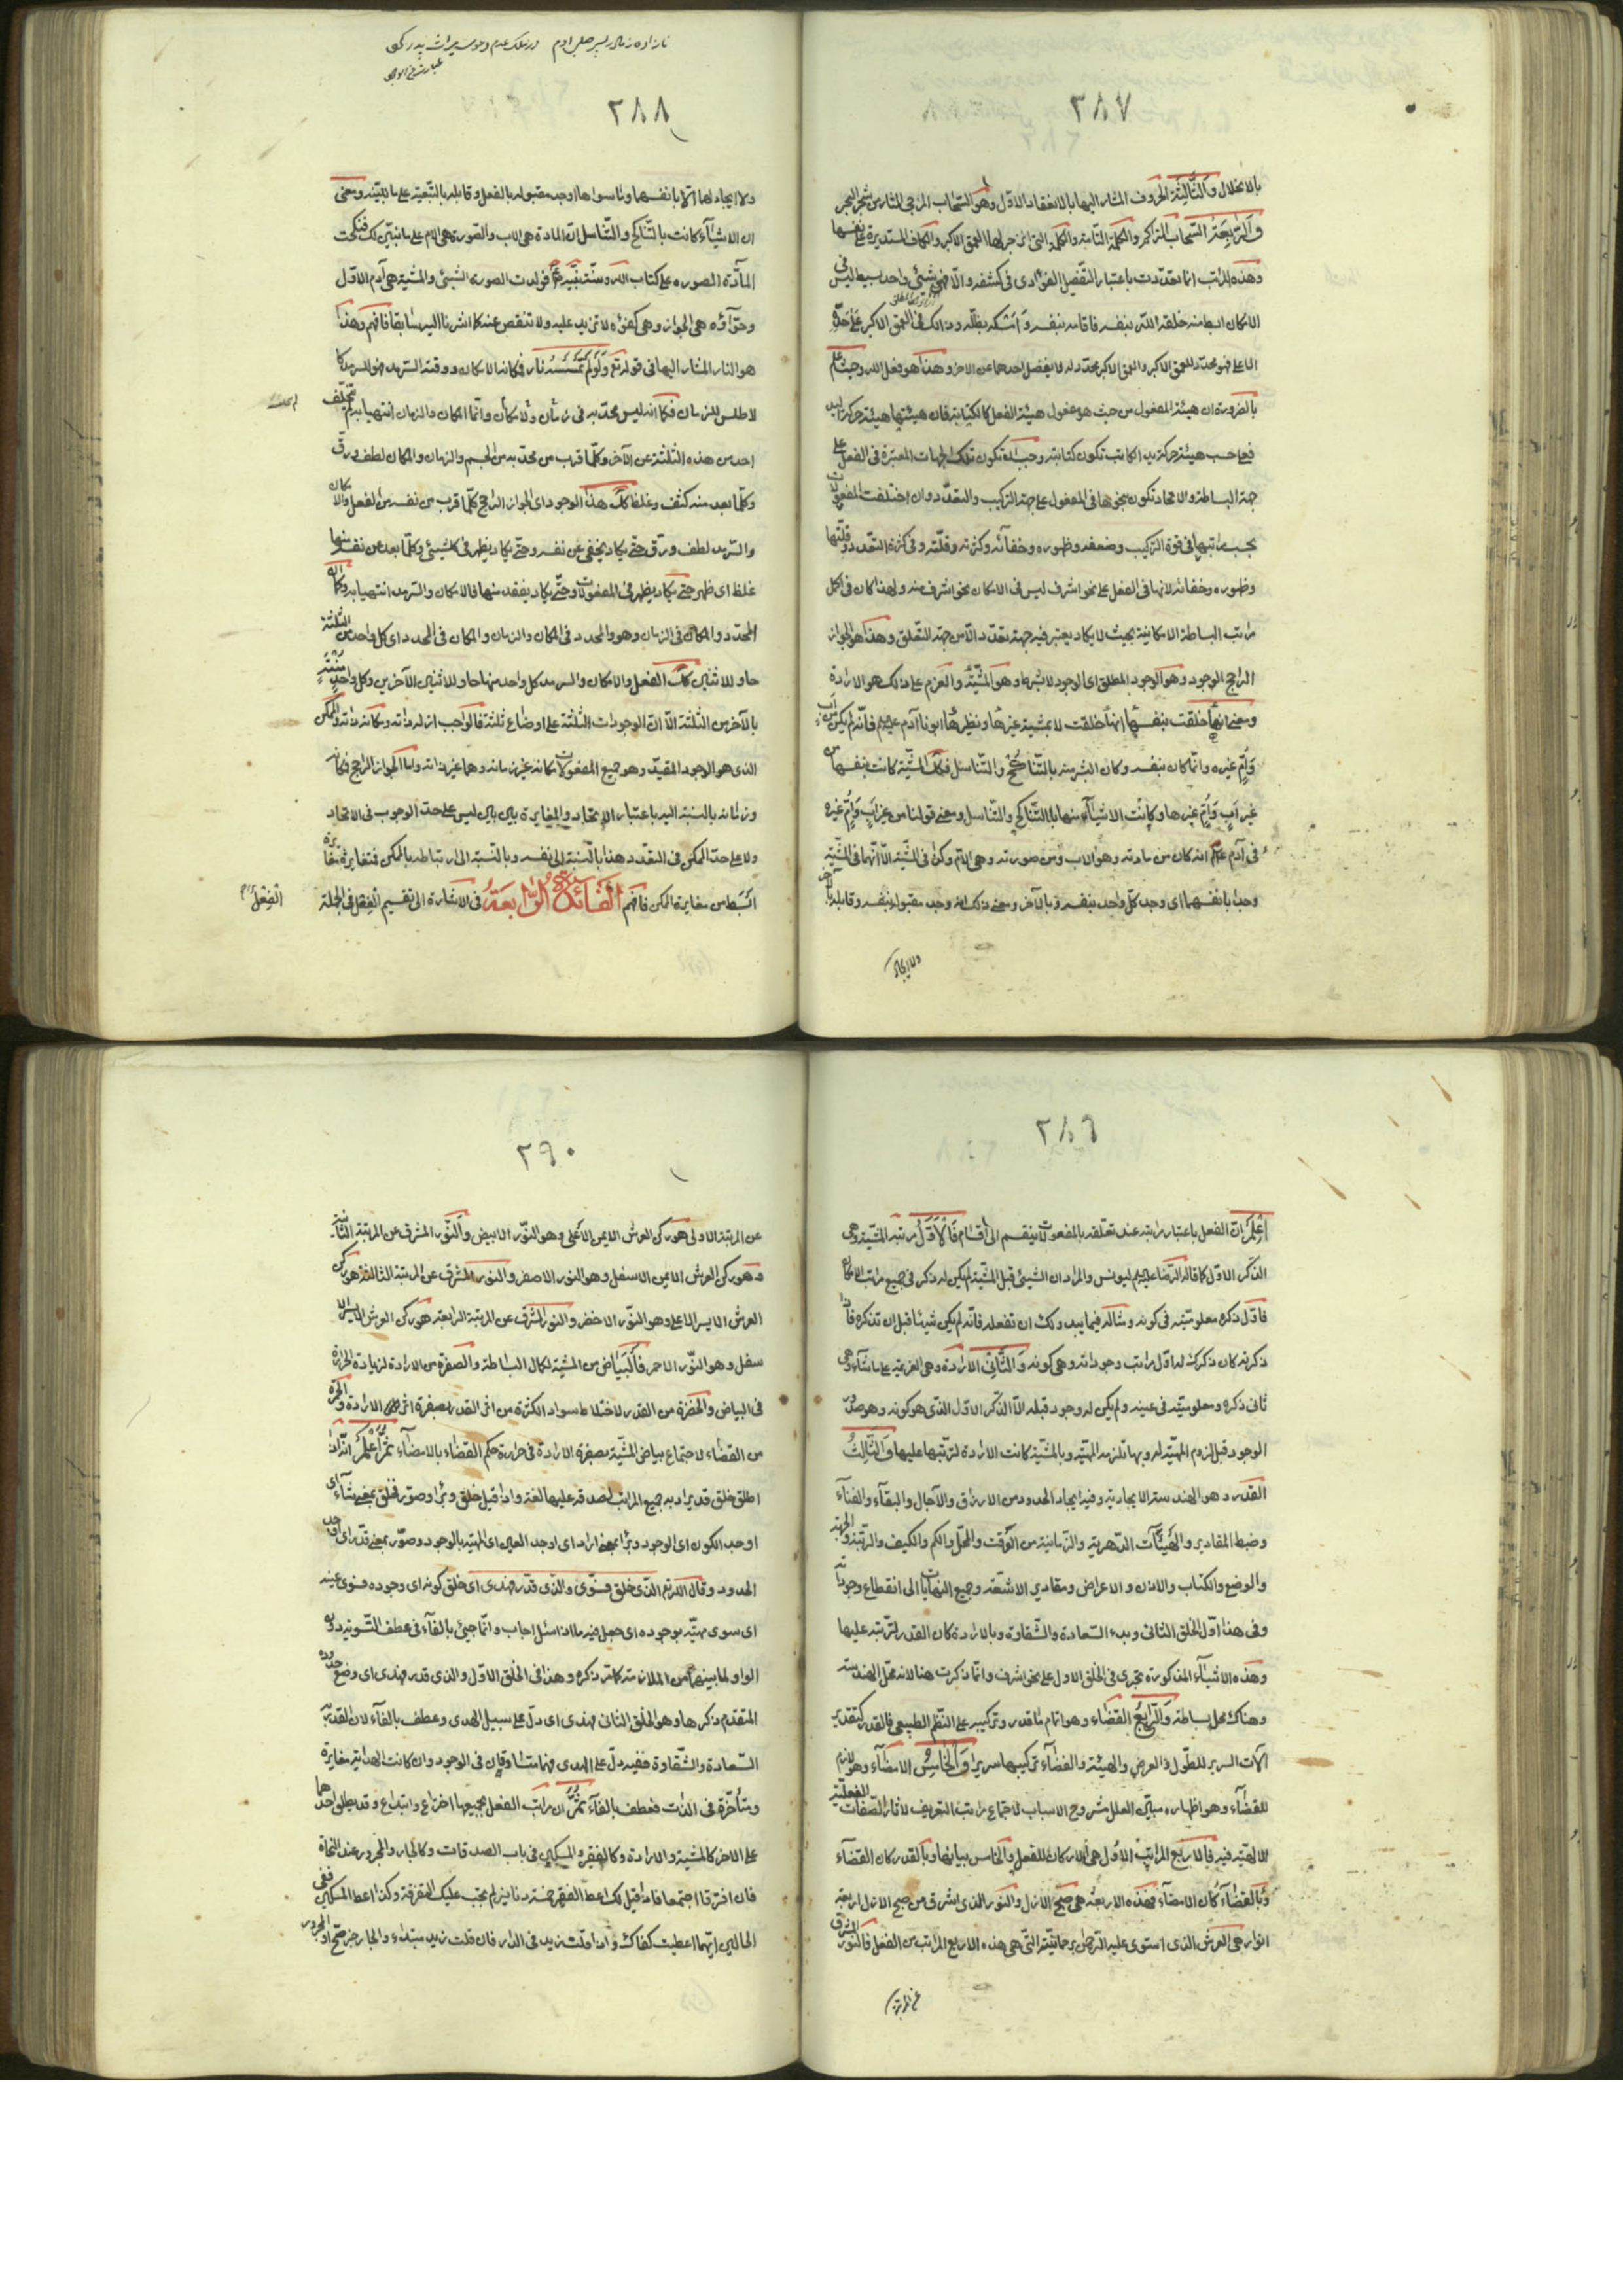 ٢٨٧
بالانحلال والثالثة الحروف المشار اليها بالانعقاد الاول وهو السحاب المزجى المثار من شجر البحر
والرابعة السحاب المتراكم والكلمة التامة والكلمة التى انزجر لها العمق الاكبر والكاف المستديرة على نفسها
وهذه المراتب انما تعددت باعتبار التفصيل الفؤادى فى كشفه والا فهى شىء واحد بسيط ليس فى
الامكان ابسط منه خلقه الله بنفسه فاقامه بنفسه وامسكه بظله وذلك فى العمق الاكبر على حده
الاعلى فهو محدد للعمق الاكبر والعمق الاكبر محدد له لا يفضل احدهما عن الاخر وهذا هو فعل الله وحيث علم
بالضرورة ان هيئة المفعول من حيث هو مفعول هيئة الفعل كالكتابة فان هيئتها هيئة حركة اليد
فعلى حسب هيئة حركة يد الكاتب تكون كتابته وجب انه تكون تلك الجهات المعتبرة فى الفعل على
جهة البساطة والاتحاد تكون بنحوها فى المفعول على جهة التركيب والتعدد وان اختلفت المفعولات
بحسب مراتبها فى قوة التركيب وضعفه وظهوره وخفائه وكثرته وقلته وفى كثرة التعدد وقلتها
وظهوره وخفائه لانها فى الفعل على نحو اشرف ليس فى الامكان نحو اشرف منه ولهذا كان فى اكمل
مراتب البساطة الامكانية بحيث لا يكاد يعتبر فيه جهة تعدد الا من جهة التعلق وهذا هو الجواز
الراجح الوجود وهو الوجود المطلق اى الوجود لا بشرط وهو المشية والعزم على ذلك هو الارادة
ومعنى انها خلقت بنفسها انها خلقت لا بمشية غيرها ونظيرها ابونا آدم عليه السلم فانه لم يكن من اب
وام غيره وانما كان بنفسه وكان البشر منه بالتناكح والتناسل فكك المشية كانت بنفسها من
غير اب وام غيرها وكانت الاشياء منها بالتناكح والتناسل ومعنى قولنا من غير اب وام غيره
فى آدم انه كان من مادته وهو الاب ومن صورته وهى الام وكذا فى المشية الا انهما فى المشية
وجدا بانفسهما اى وجد كل واحد بنفسه وبالآخر ومعنى ذلك انه وجد مقبوله بنفسه وقابله بالآخر
ولا ايجاد
٢٨٨
ولا ايجاد لهما الا بانفسهما وما سواها اوجد مقبوله بالفعل وقابله بالتبعية على ما نبينه ومعنى
ان الاشياء كانت بالتناكح والتناسل ان المادة هى الاب والصورة هى الام على ما نبين لك فنكحت
المادة الصورة على كتاب الله وسنة نبيه فولدت الصورة الشىء والمشية هى آدم الاول
وحوآؤه هى الجواز وهى كفؤه لا تزيد عليه ولا تنقص عنه كما اشرنا اليه سابقا فافهم وهذا
هو النار المشار اليها فى قوله تع ولو لم تمسسه نار فمكانه الامكان ووقته السرمد فهو للسرمد كا
لاطلس للزمان فكما انه ليس محدبه فى زمان ولا مكان وانما المكان والزمان انتهيا به لم يتخلف
احد من هذه الثلثة عن الآخر وكلما قرب من محدبه من الجسم والزمان والمكان لطف ورق
وكلما بعد منه كثف وغلظ كك هذا الوجود اى الجواز الراجح كلما قرب من نفسه من الفعل والامكان
والسرمد لطف ورق حتى يكاد يخفى عن نفسه وحتى يكاد يظهر فى كلشىء وكلما بعد عن نفسه منها
غلظ اى ظهر حتى يكاد يظهر فى المفعولات وحتى يكاد يفقد منها فالامكان والسرمد انتهيا به وكما ان
المحدد والمكان فى الزمان وهو والمحدد فى المكان والزمان والمكان فى المحدد اى كل واحد من الثلثة
حاو للاثنين كك الفعل والامكان والسرمد كل واحد منها حاو للاثنين الآخرين وكل واحد منته
بالآخر من الثلثة الا ان الوجودات الثلثة على اوضاع ثلثة فالواجب ازله ذاته ومكانه ذاته والممكن
الذى هو الوجود المقيد وهو جميع المفعولات مكانه غير زمانه وهما غير ذاته واما الجواز الراجح فمكانه
وزمانه بالنسبة اليه باعتبار الاتحاد والمغايرة بين بين ليس على حد الوجوب فى الاتحاد
ولا على حد الممكن فى التعدد هذا بالنسبة الى نفسه وبالنسبة الى ارتباطه بالممكن فتغايره مغايرة
ابسط من مغايرة الممكن فافهم الفائدة الرابعة فى الاشارة الى تقسيم الفعل فى الجملة
٢٨٩
اعلم ان الفعل باعتبار مراتبه عند تعلقه بالمفعولات ينقسم الى اقسام فالاول مرتبة المشية وهى
الذكر الاول كما قاله الرضا عليه السلم ليونس والمراد ان الشىء قبل المشية لم يكن له ذكر فى جميع مراتب الامكان
فاول ذكره معلوميته فى كونه ومثاله فيما يبدو لك ان تفعله فانه لم يكن شيئا قبل ان تذكره فاذا
ذكرته كان ذكرك له اول مراتب وجوداته وهى كونه والثانى الارادة وهى العزيمة على ما شاء وهى
ثانى ذكره ومعلوميته فى عينه ولم يكن له وجود قبله الا الذكر الاول الذى هو كونه وهو صدور
الوجود قبل لزوم المهية له وبها تلزمه المهية وبالمشية كانت الارادة لترتبها عليها والثالث
القدر وهو الهندسة الايجادية وفيه ايجاد الحدود من الارزاق والآجال والبقآء والفناء
وضبط المقادير والهيئات الدهرية والزمانية من الوقت والمحل والكم والكيف والرتبة والجهة
والوضع والكتاب والاذن والاعراض ومقادير الاشعة وجميع النهايات الى انقطاع وجوداته
وفى هذا اول الخلق الثانى وبدء السعادة والشقاوة وبالارادة كان القدر لترتبه عليها
وهذه الاشياء المذكورة تجرى فى الخلق الاول على نحو اشرف وانما ذكرت هنا لانه محل الهندسة
وهناك محل بساطة والرابع القضاء وهو اتمام ما قدر وتركيبه على النظم الطبيعى فالقدر كتقدير
آلات السرير للطول والعرض والهيئة والقضآء تركيبها سريرا والخامس الامضاء وهو لازم
للقضآء وهو اظهاره مبين العلل مشروح الاسباب لاجتماع مراتب التعريف لاثار الصفات الفعلية
الالهية فيه فالاربع المراتب الاول هى الاركان للفعل والخامس بيانها وبالقدر كان القضآء
وبالقضاء كان الامضآء فهذه الاربعة هى صبح الازل والنور الذى اشرق من صبح الازل اربعة
انوار هى العرش الذى استوى عليه الرحمن برحمانيته التى هى هذه الاربع المراتب من الفعل فالنور المشرق
٢٩٠
عن المرتبة الاولى هو ركن العرش الايمن الاعلى وهو النور الابيض والنور المشرق عن المرتبة الثانية
وهو ركن العرش الايمن الاسفل وهو النور الاصفر والنور المشرق عن المرتبة الثالثة هو ركن
العرش الايسر الاعلى وهو النور الاخضر والنور المشرق عن المرتبة الرابعة هو ركن العرش الايسر الا
سفل وهو النور الاحمر فالبياض من المشية لكمال البساطة والصفرة من الارادة لزيادة الحرارة
فى البياض والخضرة من القدر لاختلاط سواد الكثرة من اثر القدر بصفرة اثر الارادة والحمرة
من القضاء لاجتماع بياض المشية بصفرة الارادة فى حرارة حكم القضاء بالامضآء ثم اعلم انه اذا
اطلق خلق قد يراد به جميع المراتب لصدقه عليها لغة واذا قيل خلق وبرا وصور فخلق بمعنى شآء اى
اوجد الكون اى الوجود وبرا بمعنى اراد اى اوجد العين اى المهية بالوجود وصور بمعنى قدر اى اوجد
الحدود وقال الله تع الذى خلق فسوى والذى قدر فهدى اى خلق كونه اى وجوده فسوى عينه
اى سوى مهيته بوجوده اى جعل فيه ما اذا سئل اجاب وانما جىء بالفآء فى عطف التسوية دون
الواو لما بينهما من الملازمة كما تر ذكره وهذا فى الخلق الاول والذى قدر فهدى اى وضع حدوده
المتقدم ذكرها وهو الخلق الثانى فهدى اى دل على سبيل الهدى وعطف بالفآء لان القدر به
السعادة والشقاوة ففيه دل على الهدى فهما متساوقان فى الوجود وان كانت الهداية مغايرة
ومتأخرة فى الذات فعطف بالفآء ثم ان مراتب الفعل بجميعها اختراع وابتداع وقد يطلق احدهما
على الاخر كالمشية والارادة وكالفقير والمسكين فى باب الصدقات وكالجار والمجرور عند النحاة
فان افترقا اجتمعا فاذا قيل لك اعط الفقير خمسة دنانير لم يجب عليك التفرقة وكذا اعط المسكين ففى
الحالين ايهما اعطيت كفاك واذا قلت زيد فى الدار فان قلت زيد مبتداء والجار خبر صح او المجرور